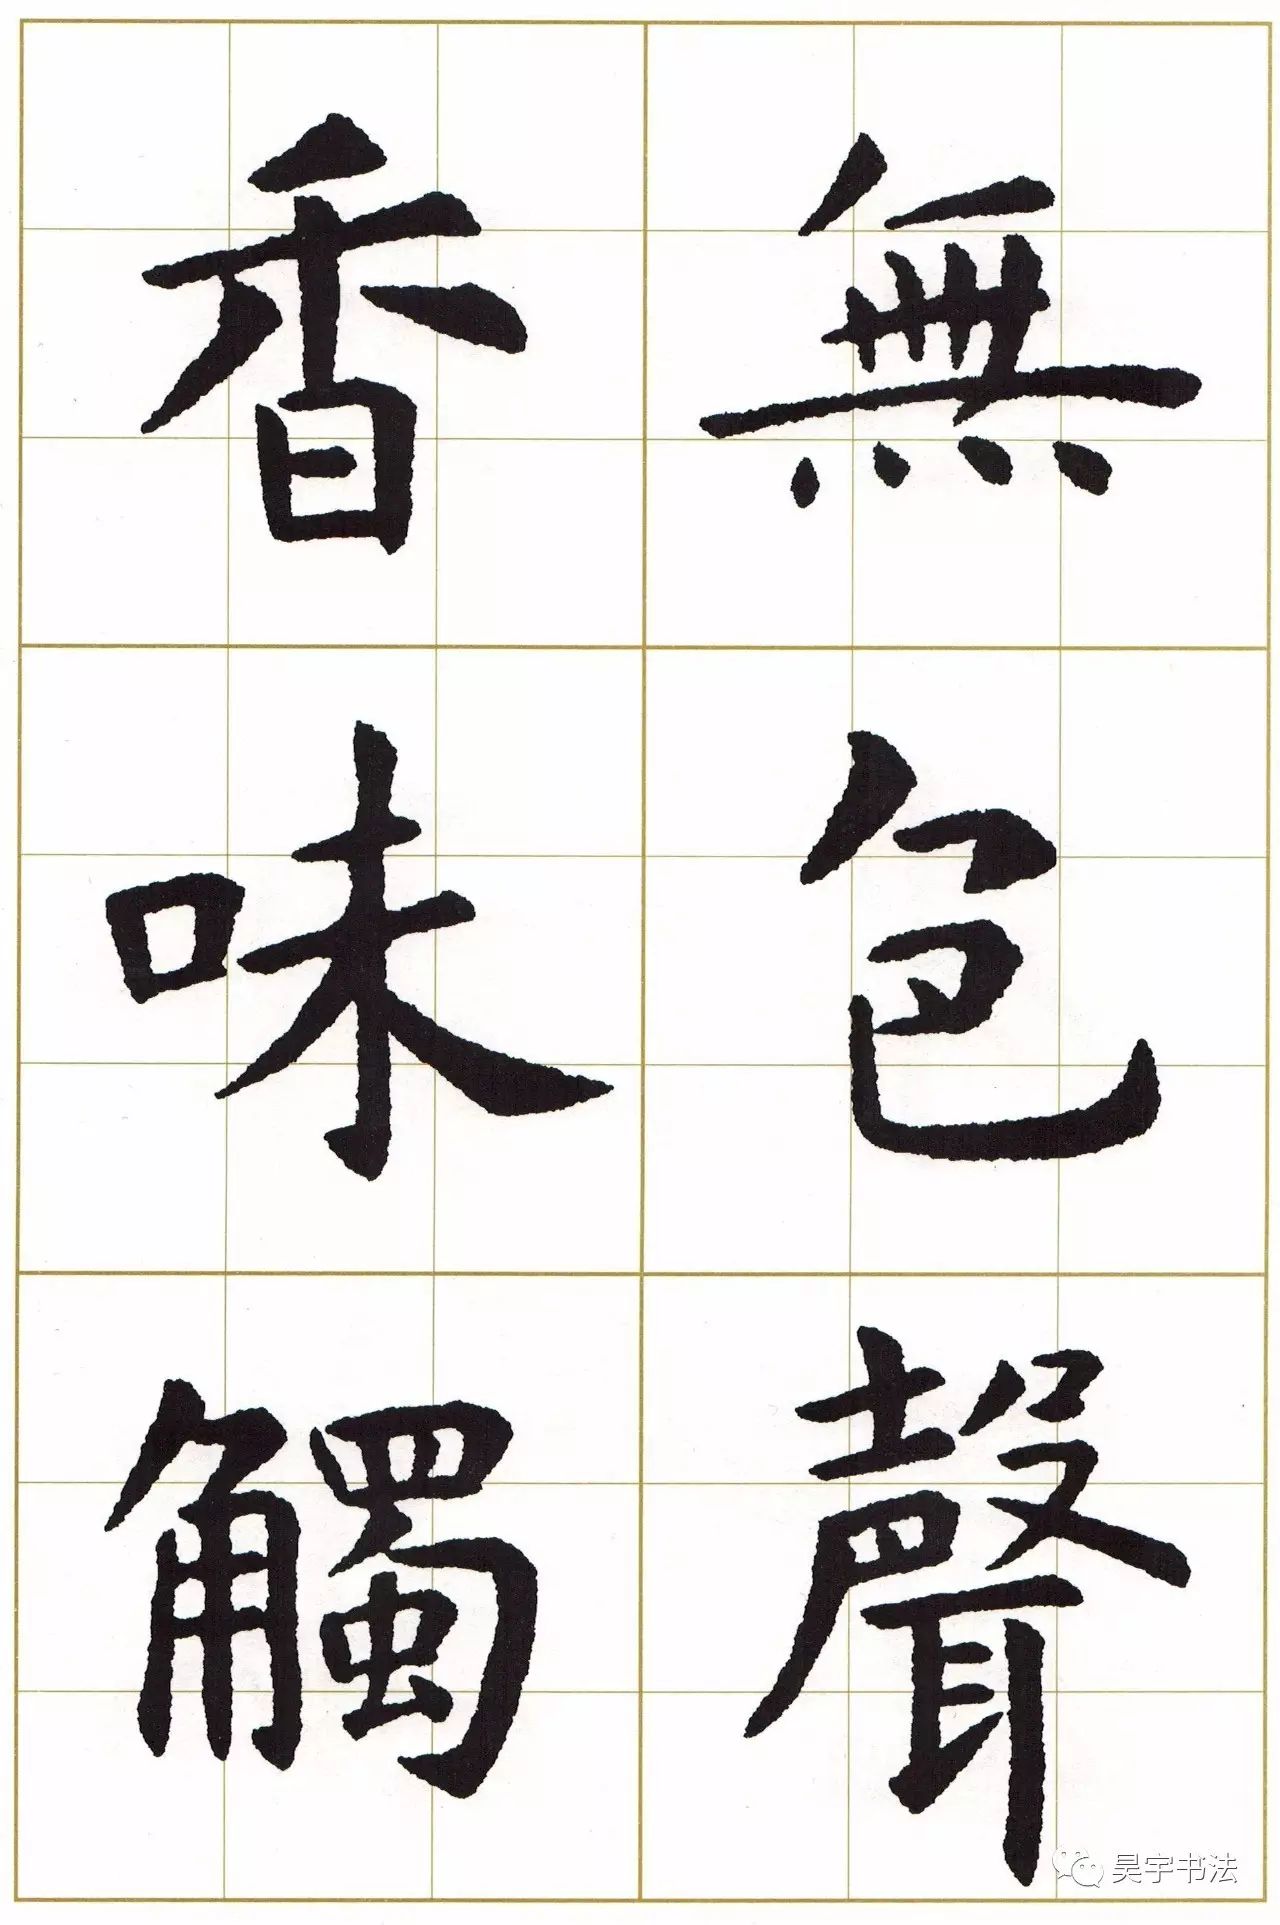 無色聲
香味觸
昊宇书法